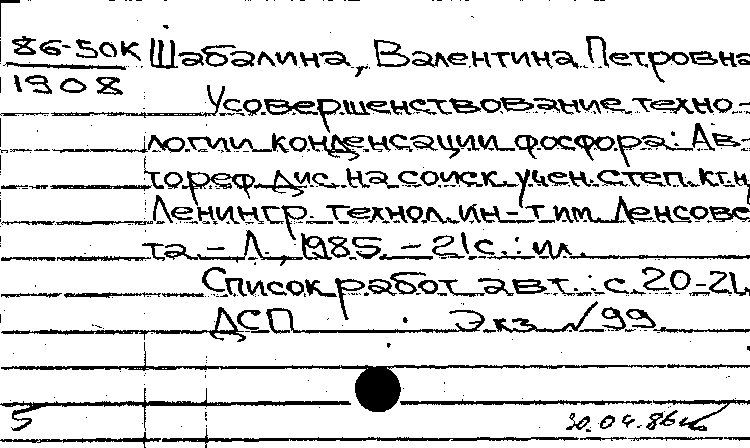 86-50К Шабалина, Валентина Петровна
1908
Усовершенствование техно-
логии конденсации фосфора: Ав-
тореф. дис. на соиск. учен. степ. к.т.н
Ленингр. технол. ин-т им. Ленсове
та. - Л., 1985. - 21с. : ил.
Список работ авт.: с. 20-21.
ДСП Экз. № 99.
5 30.04.86